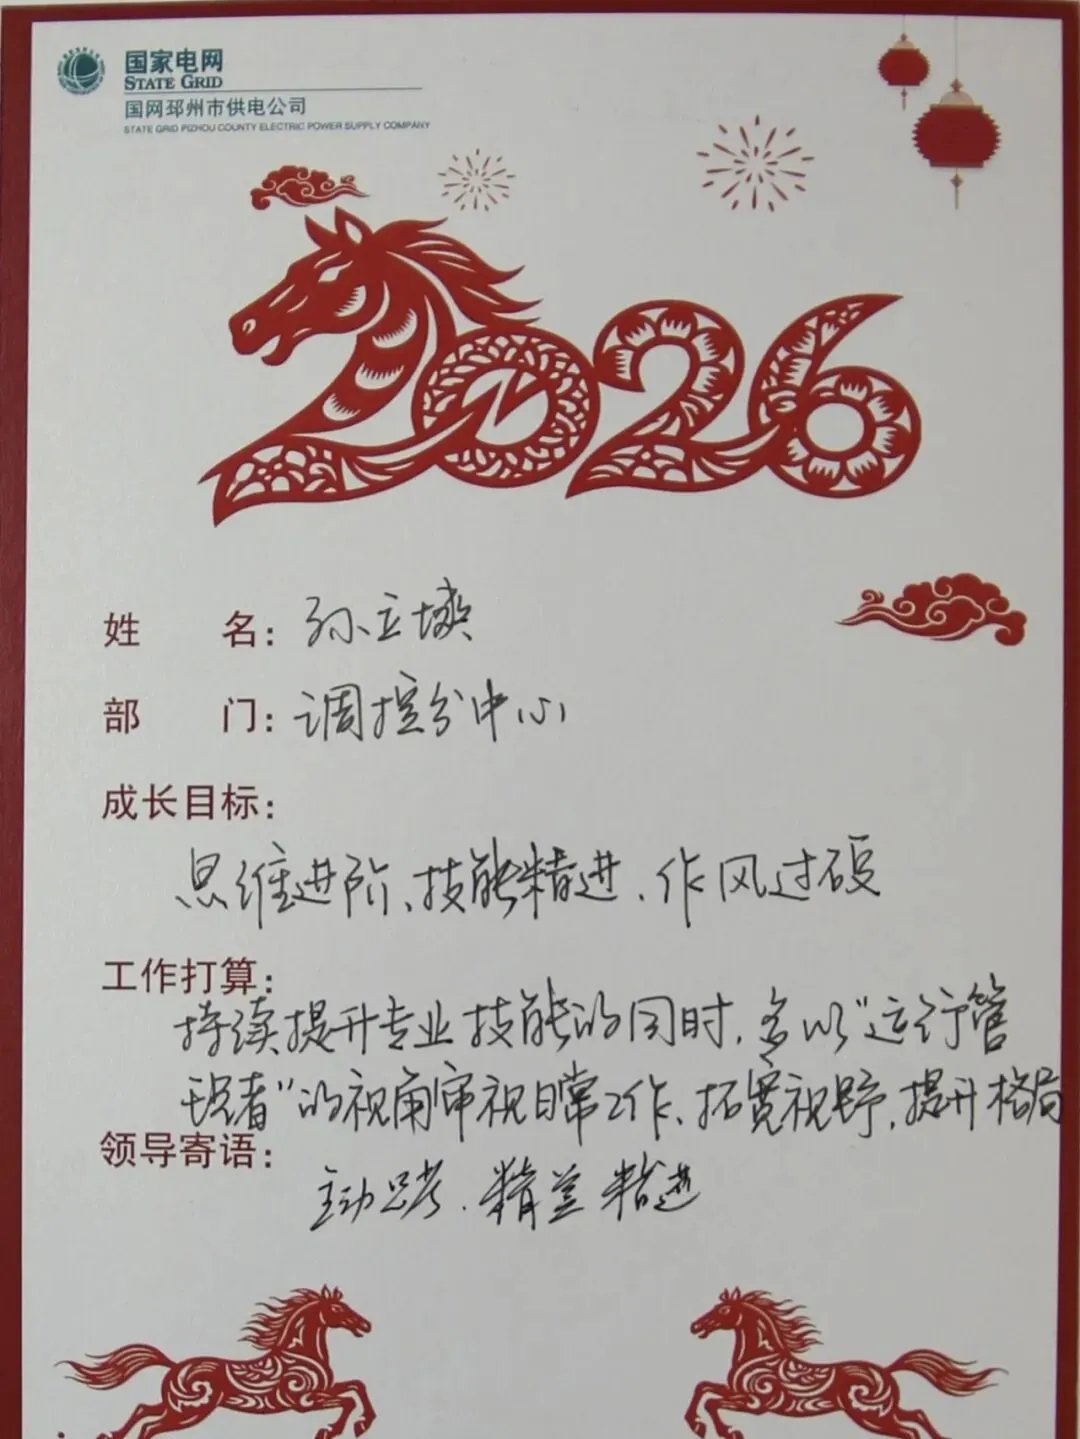 国家电网
STATE GRID
国网邳州市供电公司
STATE GRID PIZHOU COUNTY ELECTRIC POWER SUPPLY COMPANY
2026
姓 名: 孙立
部 门: 调控分中心
成长目标:
思维进阶、技能精进、作风过硬
工作打算:
持续提升专业技能的同时,多以“运行管
理者”的视角审视日常工作、拓宽视野,提升格局
领导寄语:
主动思考、精益精进